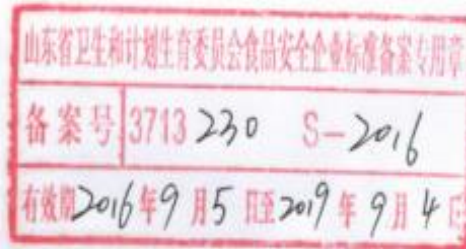 山东省卫生和计划生育委员会食品安全企业标准备案专用章
备案号 3713 230 S-2016
有效期2016年9月5日至2019年9月4日